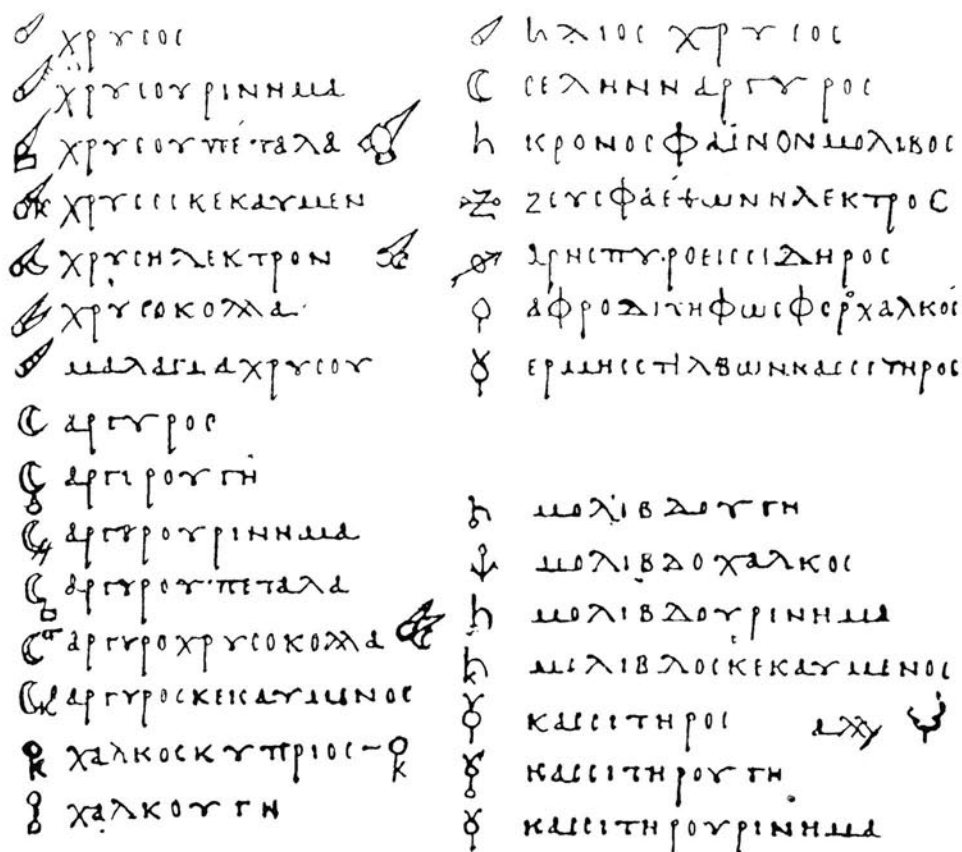 χρυσος
χρυσουρινημα
χρυσουπέταλα
χρυσεςκεκαυμεν
χρυσηλεκτρον
χρυσοκολλα
μαλαγμαχρυσου
αργυρος
αργιρουγη
αργυρουρινημα
αργυρουπεταλα
αργυροχρυσοκολλα
αργυροσκεκαυμενος
χαλκοσκυπριος
χαλκουγη
ηλιος χρυσος
σεληνηαργυρος
κρονοςφαινονμολιβος
ζευςφαέθωνηλεκτρος
αρηςπυροειςσιδηρος
αφροδιτηφωσφερχαλκος
ερμηςστιλβωνκασσιτηρος
μολιβδουγη
μολιβδοχαλκος
μολιβδουρινημα
μολιβδοσκεκαυμενος
κασσιτηρος
κασσιτηρουγη
κασσιτηρουρινημα